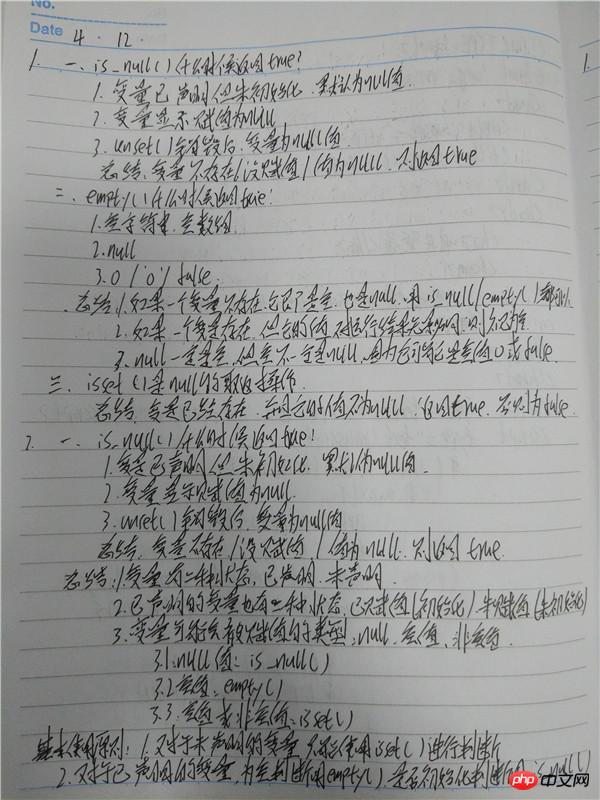 No.
Date 4 · 12 ·
1. 一、is_null()什么时候返回true?
1. 变量已声明但未初始化,默认为null值.
2. 变量显示赋值为null
3. unset()销毁后,变量为null值.
总结:变量不存在/没赋值/值为null,则返回true
二、empty()什么时候返回true:
1. 空字符串,空数组.
2. null
3. 0/'0'/false.
总结:1. 如果一个变量不存在,它即是空,也是null,用is_null/empty()都可以.
2. 如果一个变量存在,但它的值对运行结果无影响,则
3. null一定是空,但空不一定是null,因为它可能是空值0或false.
三、isset()是null的取反操作.
总结:变量已经存在,并且它的值不为null,返回true,否则为false.
2. 一、is_null()什么时候返回true!
1. 变量已声明但未初始化,默认为null值.
2. 变量显示赋值为null.
3. unset()销毁后,变量为null值
总结:变量不存在/没赋值/值为null,则返回true.
总结:1. 变量有二种状态,已声明,未声明
2. 已声明的变量也有二种状态,已赋值(初始化)未赋值(未初始化)
3. 变量赋值的类型:null,空值,非空值.
3.1:null值:is_null()
3.2空值:empty()
3.3:空值或非空值:isset()
基本使用原则:1. 对于未声明的变量,只能使用isset()进行判断
2. 对于已声明的变量,为空判断用empty(),是否初始化判断用is_null()
1.
php中文网